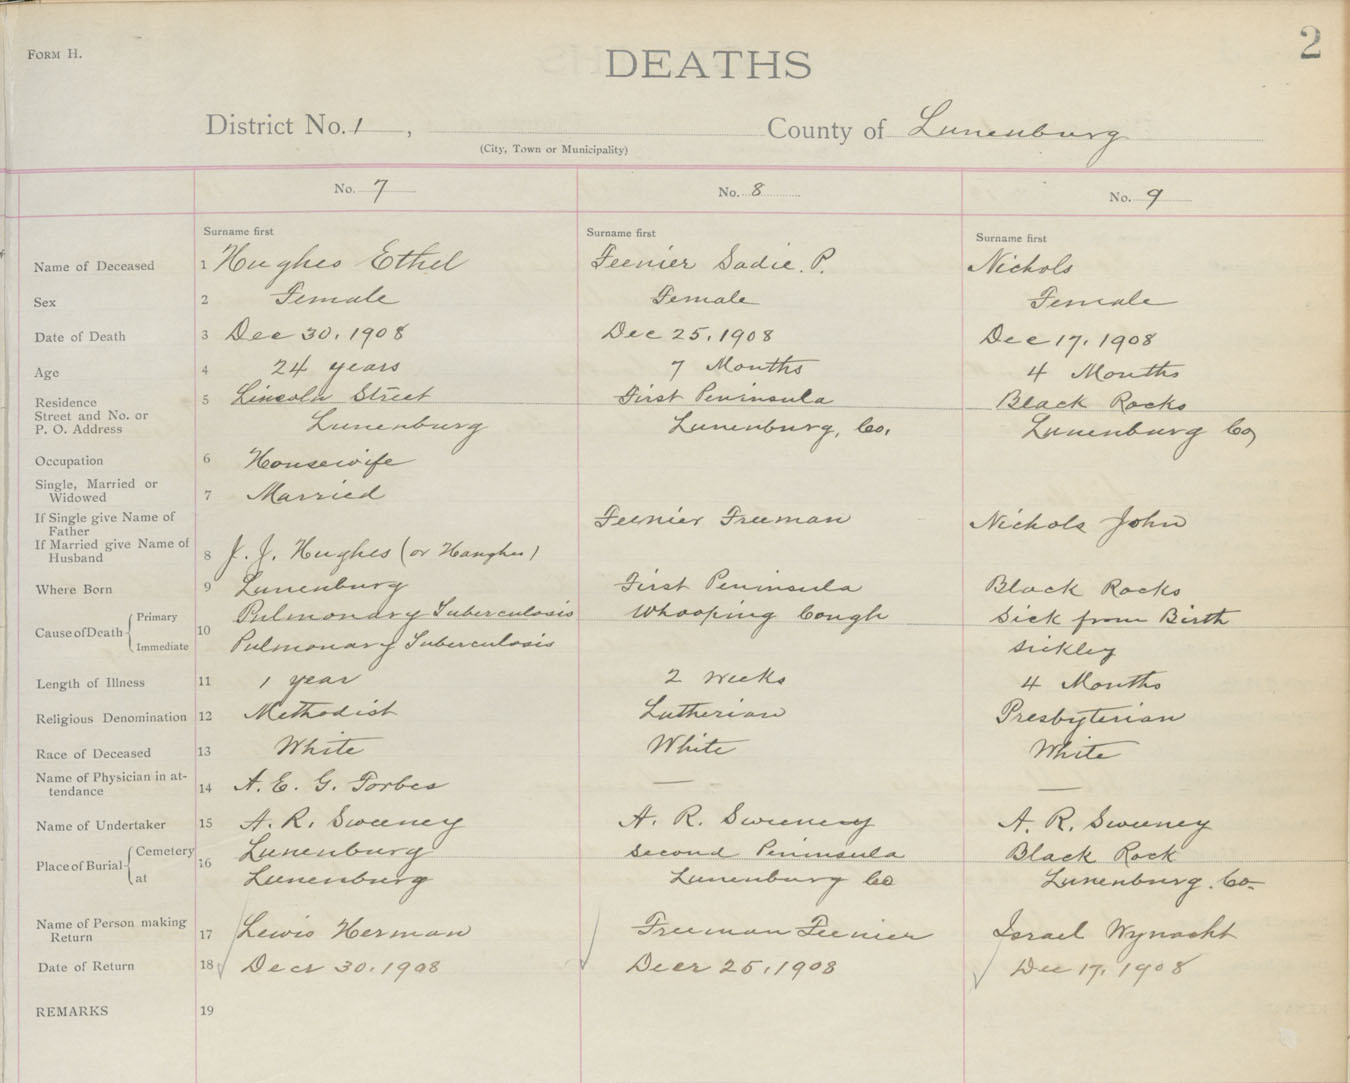 FORM H.
DEATHS
2
District No. 1 , County of Lunenburg
(City, Town or Municipality)
No. 7 No. 8 No. 9
Surname first Surname first Surname first
Name of Deceased 1 Hughes Ethel Feenier Sadie. P. Nichols
Sex 2 Female Female Female
Date of Death 3 Dec 30, 1908 Dec 25, 1908 Dec 17, 1908
Age 4 24 years 7 Months 4 Months
Residence 5 Lincoln Street First Peninsula Black Rocks
Street and No. or
P. O. Address Lunenburg Lunenburg, Co, Lunenburg Co,
Occupation 6 Housewife
Single, Married or
Widowed 7 Married
If Single give Name of
Father Feenier Freeman Nichols John
If Married give Name of
Husband 8 J. J. Hughes (or Haughn)
Where Born 9 Lunenburg First Peninsula Black Rocks
Cause of Death 10 Primary Pulmonary Tuberculosis Whooping Cough Sick from Birth
Immediate Pulmonary Tuberculosis sickley
Length of Illness 11 1 year 2 weeks 4 Months
Religious Denomination 12 Methodist Lutherian Presbyterian
Race of Deceased 13 White White White
Name of Physician in at-
tendance 14 A. E. G. Forbes — —
Name of Undertaker 15 A. R. Sweeney A. R. Sweeney A. R. Sweeney
Place of Burial 16 Cemetery Lunenburg Second Peninsula Black Rock
at Lunenburg Lunenburg Co Lunenburg. Co-
Name of Person making
Return 17 Lewis Herman Freeman Feenier Israel Wynacht
Date of Return 18 Decr 30, 1908 Decr 25, 1908 Dec 17, 1908
REMARKS 19